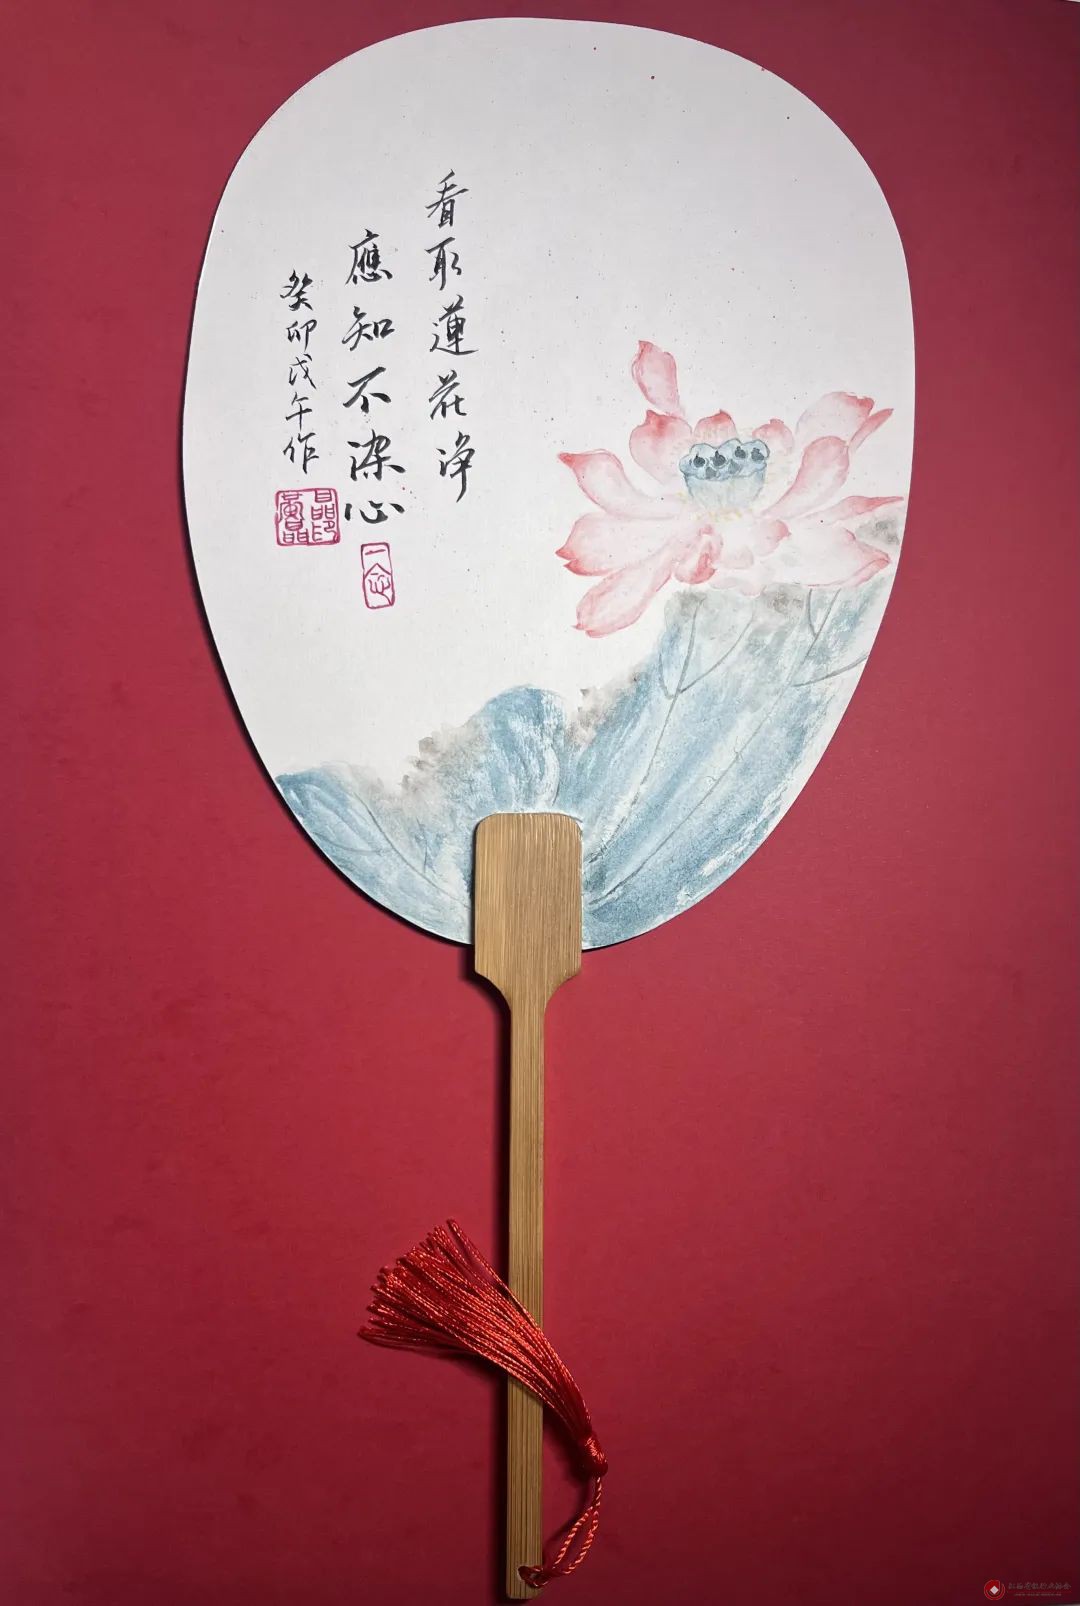 看取蓮花净
應知不染心
癸卯戊午作
一念